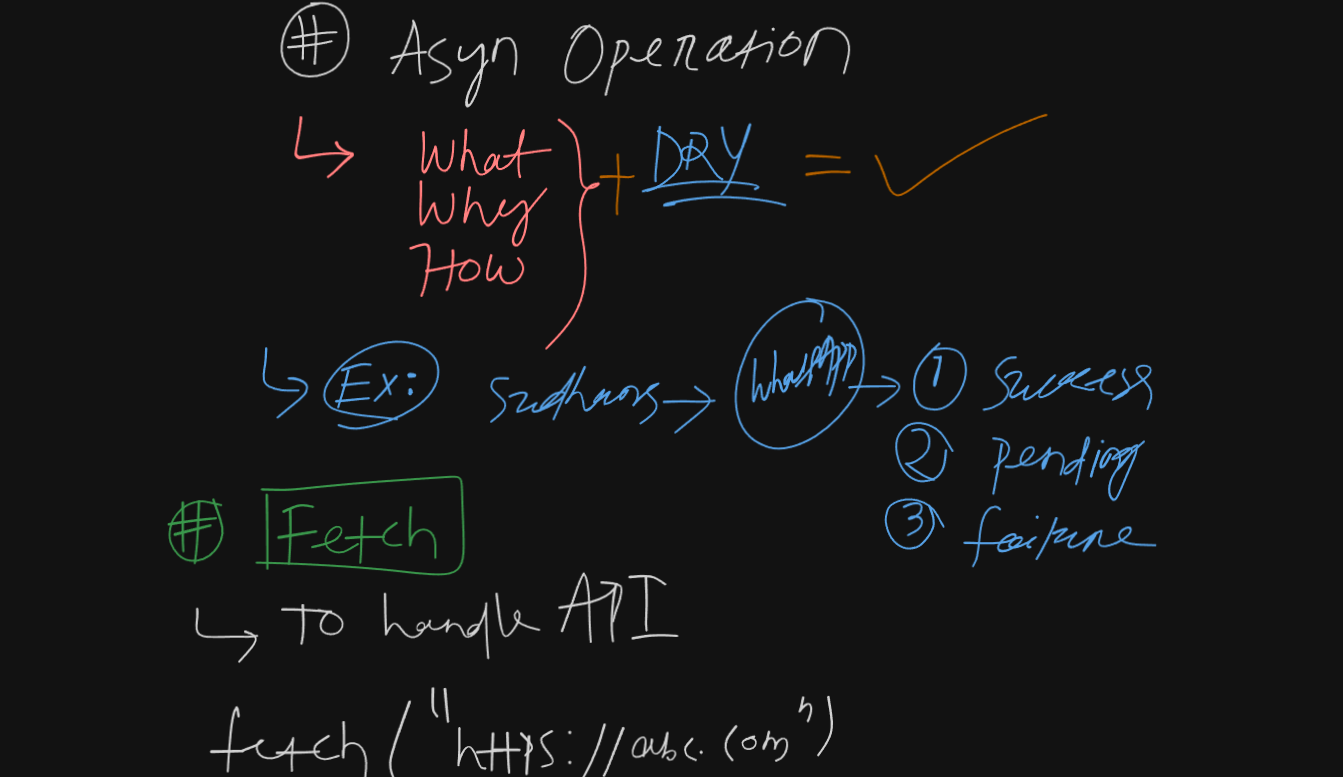 # Asyn Operation
What
Why
How
+ DRY = ✓
Ex: Sudhans → WhatsApp → 1 Success
2 pending
3 failure
# Fetch
To handle API
fetch("https://abc.com")